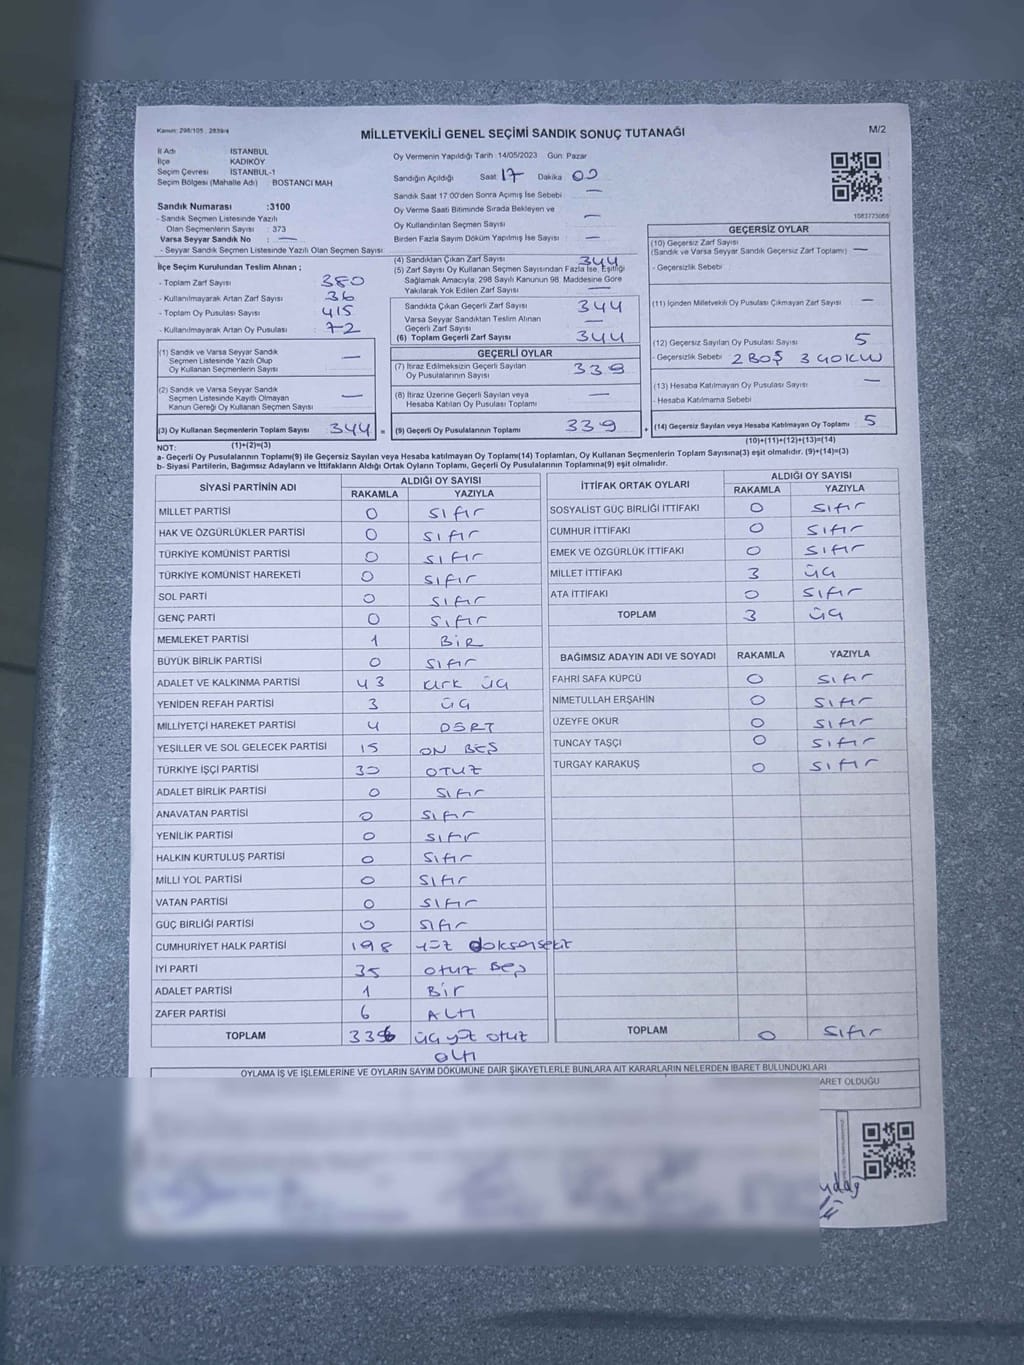 Kanun: 298/105 , 2839/4
MİLLETVEKİLİ GENEL SEÇİMİ SANDIK SONUÇ TUTANAĞI
M/2
İl Adı İSTANBUL
İlçe KADIKÖY
Seçim Çevresi İSTANBUL-1
Seçim Bölgesi (Mahalle Adı) BOSTANCI MAH
Oy Vermenin Yapıldığı Tarih :14/05/2023 Gün: Pazar
Sandığın Açıldığı Saat 17 Dakika 00
Sandık Saat 17:00'den Sonra Açımış İse Sebebi —
Oy Verme Saati Bitiminde Sırada Bekleyen ve
Oy Kullandırılan Seçmen Sayısı —
Birden Fazla Sayım Döküm Yapılmış İse Sayısı —
Sandık Numarası :3100
- Sandık Seçmen Listesinde Yazılı
Olan Seçmenlerin Sayısı : 373
Varsa Seyyar Sandık No : —
- Seyyar Sandık Seçmen Listesinde Yazılı Olan Seçmen Sayısı:
İlçe Seçim Kurulundan Teslim Alınan ;
- Toplam Zarf Sayısı : 380
- Kullanılmayarak Artan Zarf Sayısı : 36
- Toplam Oy Pusulası Sayısı : 415
- Kullanılmayarak Artan Oy Pusulası : 72
(1) Sandık ve Varsa Seyyar Sandık
Seçmen Listesinde Yazılı Olup
Oy Kullanan Seçmenlerin Sayısı —
(2) Sandık ve Varsa Seyyar Sandık
Seçmen Listesinde Kayıtlı Olmayan
Kanun Gereği Oy Kullanan Seçmen Sayısı —
(3) Oy Kullanan Seçmenlerin Toplam Sayısı 344 =
(1)+(2)=(3)
(4) Sandıktan Çıkan Zarf Sayısı 344
(5) Zarf Sayısı Oy Kullanan Seçmen Sayısından Fazla İse, Eşitliği
Sağlamak Amacıyla, 298 Sayılı Kanunun 98. Maddesine Göre
Yakılarak Yok Edilen Zarf Sayısı —
Sandıkta Çıkan Geçerli Zarf Sayısı 344
Varsa Seyyar Sandıktan Teslim Alınan
Geçerli Zarf Sayısı —
(6) Toplam Geçerli Zarf Sayısı 344
GEÇERLİ OYLAR
(7) İtiraz Edilmeksizin Geçerli Sayılan
Oy Pusulalarının Sayısı 339
(8) İtiraz Üzerine Geçerli Sayılan veya
Hesaba Katılan Oy Pusulası Toplamı —
(9) Geçerli Oy Pusulalarının Toplamı 339 +
1683773066
GEÇERSİZ OYLAR
(10) Geçersiz Zarf Sayısı
(Sandık ve Varsa Seyyar Sandık Geçersiz Zarf Toplamı) —
- Geçersizlik Sebebi :
(11) İçinden Milletvekili Oy Pusulası Çıkmayan Zarf Sayısı —
(12) Geçersiz Sayılan Oy Pusulası Sayısı 5
- Geçersizlik Sebebi : 2 BOŞ
(13) Hesaba Katılmayan Oy Pusulası Sayısı —
- Hesaba Katılmama Sebebi
(14) Geçersiz Sayılan veya Hesaba Katılmayan Oy Toplamı 5
(10)+(11)+(12)+(13)=(14)
NOT:
a- Geçerli Oy Pusulalarının Toplamı(9) ile Geçersiz Sayılan veya Hesaba katılmayan Oy Toplamı(14) Toplamları, Oy Kullanan Seçmenlerin Toplam Sayısına(3) eşit olmalıdır. (9)+(14)=(3)
b- Siyasi Partilerin, Bağımsız Adayların ve İttifakların Aldığı Ortak Oyların Toplamı, Geçerli Oy Pusulalarının Toplamına(9) eşit olmalıdır.
SİYASİ PARTİNİN ADI ALDIĞI OY SAYISI
RAKAMLA YAZIYLA
MİLLET PARTİSİ 0 sıfır
HAK VE ÖZGÜRLÜKLER PARTİSİ 0 sıfır
TÜRKİYE KOMÜNİST PARTİSİ 0 sıfır
TÜRKİYE KOMÜNİST HAREKETİ 0 sıfır
SOL PARTİ 0 sıfır
GENÇ PARTİ 0 sıfır
MEMLEKET PARTİSİ 1 BİR
BÜYÜK BİRLİK PARTİSİ 0 sıfır
ADALET VE KALKINMA PARTİSİ 43 kırk üç
YENİDEN REFAH PARTİSİ 3 üç
MİLLİYETÇİ HAREKET PARTİSİ 4 DÖRT
YEŞİLLER VE SOL GELECEK PARTİSİ 15 ON BEŞ
TÜRKİYE İŞÇİ PARTİSİ 30 OTUZ
ADALET BİRLİK PARTİSİ 0 sıfır
ANAVATAN PARTİSİ 0 sıfır
YENİLİK PARTİSİ 0 sıfır
HALKIN KURTULUŞ PARTİSİ 0 sıfır
MİLLİ YOL PARTİSİ 0 sıfır
VATAN PARTİSİ 0 sıfır
GÜÇ BİRLİĞİ PARTİSİ 0 sıfır
CUMHURİYET HALK PARTİSİ 198 yüz doksansekiz
İYİ PARTİ 35 otuz Beş
ADALET PARTİSİ 1 Bir
ZAFER PARTİSİ 6 ALtı
TOPLAM 336 üç yüz otuz
altı
İTTİFAK ORTAK OYLARI ALDIĞI OY SAYISI
RAKAMLA YAZIYLA
SOSYALİST GÜÇ BİRLİĞİ İTTİFAKI 0 sıfır
CUMHUR İTTİFAKI 0 sıfır
EMEK VE ÖZGÜRLÜK İTTİFAKI 0 sıfır
MİLLET İTTİFAKI 3 üç
ATA İTTİFAKI 0 sıfır
TOPLAM 3 üç
BAĞIMSIZ ADAYIN ADI VE SOYADI RAKAMLA YAZIYLA
FAHRİ SAFA KÜPCÜ 0 sıfır
NİMETULLAH ERŞAHİN 0 sıfır
ÜZEYFE OKUR 0 sıfır
TUNCAY TAŞÇI 0 sıfır
TURGAY KARAKUŞ 0 sıfır
TOPLAM 0 sıfır
OYLAMA İŞ VE İŞLEMLERİNE VE OYLARIN SAYIM DÖKÜMÜNE DAİR ŞİKAYETLERLE BUNLARA AİT KARARLARIN NELERDEN İBARET BULUNDUKLARI
ARET OLDUĞU